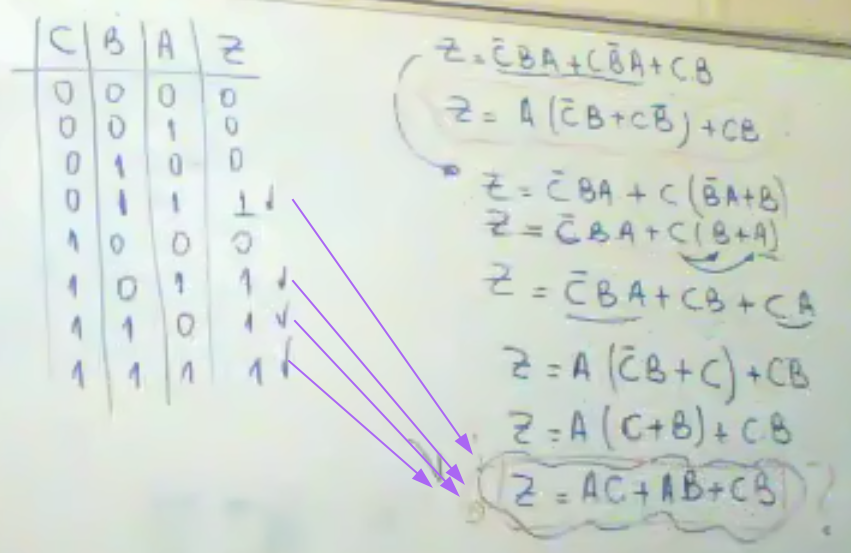 C B A Z
0 0 0 0
0 0 1 0
0 1 0 0
0 1 1 1
1 0 0 0
1 0 1 1
1 1 0 1
1 1 1 1
Z = C̄BA + CB̄A + CB
Z = A (C̄B + CB̄) + CB
Z = C̄BA + C (B̄A + B)
Z = C̄BA + C (B + A)
Z = C̄BA + CB + CA
Z = A (C̄B + C) + CB
Z = A (C + B) + CB
Z = AC + AB + CB ?